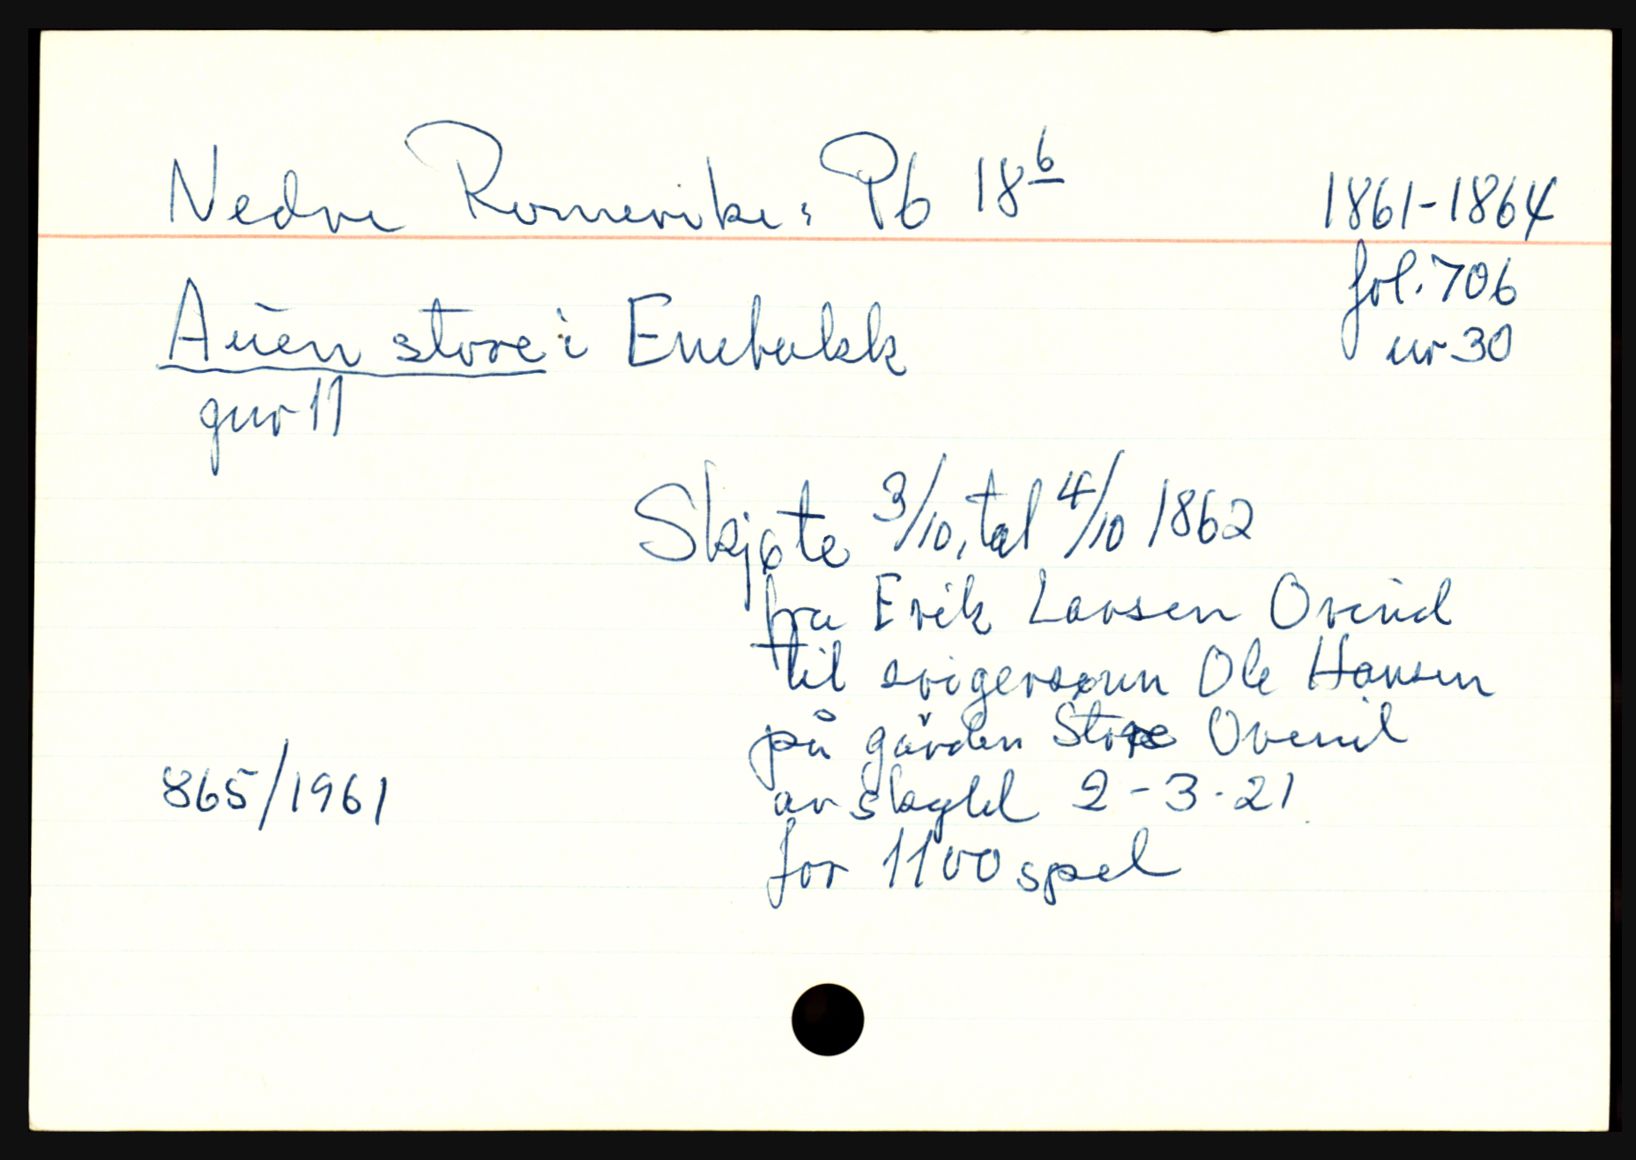 Nedre Romerike: Pb 18 6
1861-1864
fol. 706
nr 30
Auen store i Enebakk
gnr 11
Skjøte 3/10, tal 4/10 1862
fra Erik Larsen Ovenid
til svigersønn Ole Hansen
på gården Store Ovenil
av skyld 2-3-21
for 1100 spd
865/1961